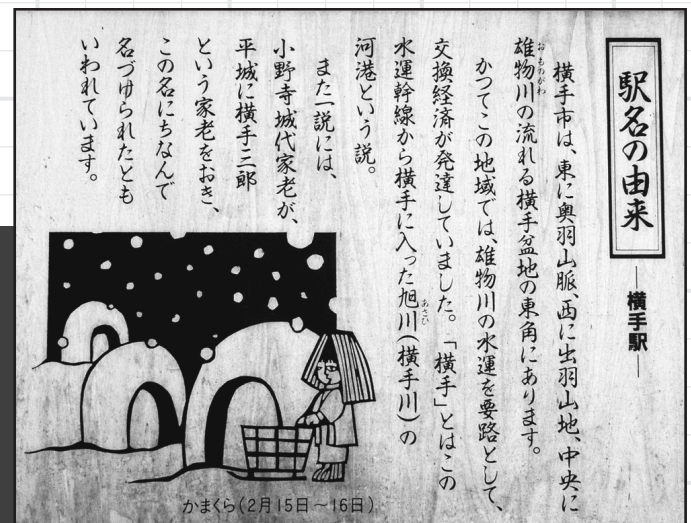 駅名の由来
―横手駅―
横手市は、東に奥羽山脈、西に出羽山地、中央に
おものがわ
雄物川の流れる横手盆地の東角にあります。
かつてこの地域では、雄物川の水運を要路として、
交換経済が発達していました。「横手」とはこの
あさひ
水運幹線から横手に入った旭川(横手川)の
河港という説。
また一説には、
小野寺城代家老が、
平城に横手三郎
という家老をおき、
この名にちなんで
名づゆられたとも
いわれています。
かまくら(2月15日~16日)